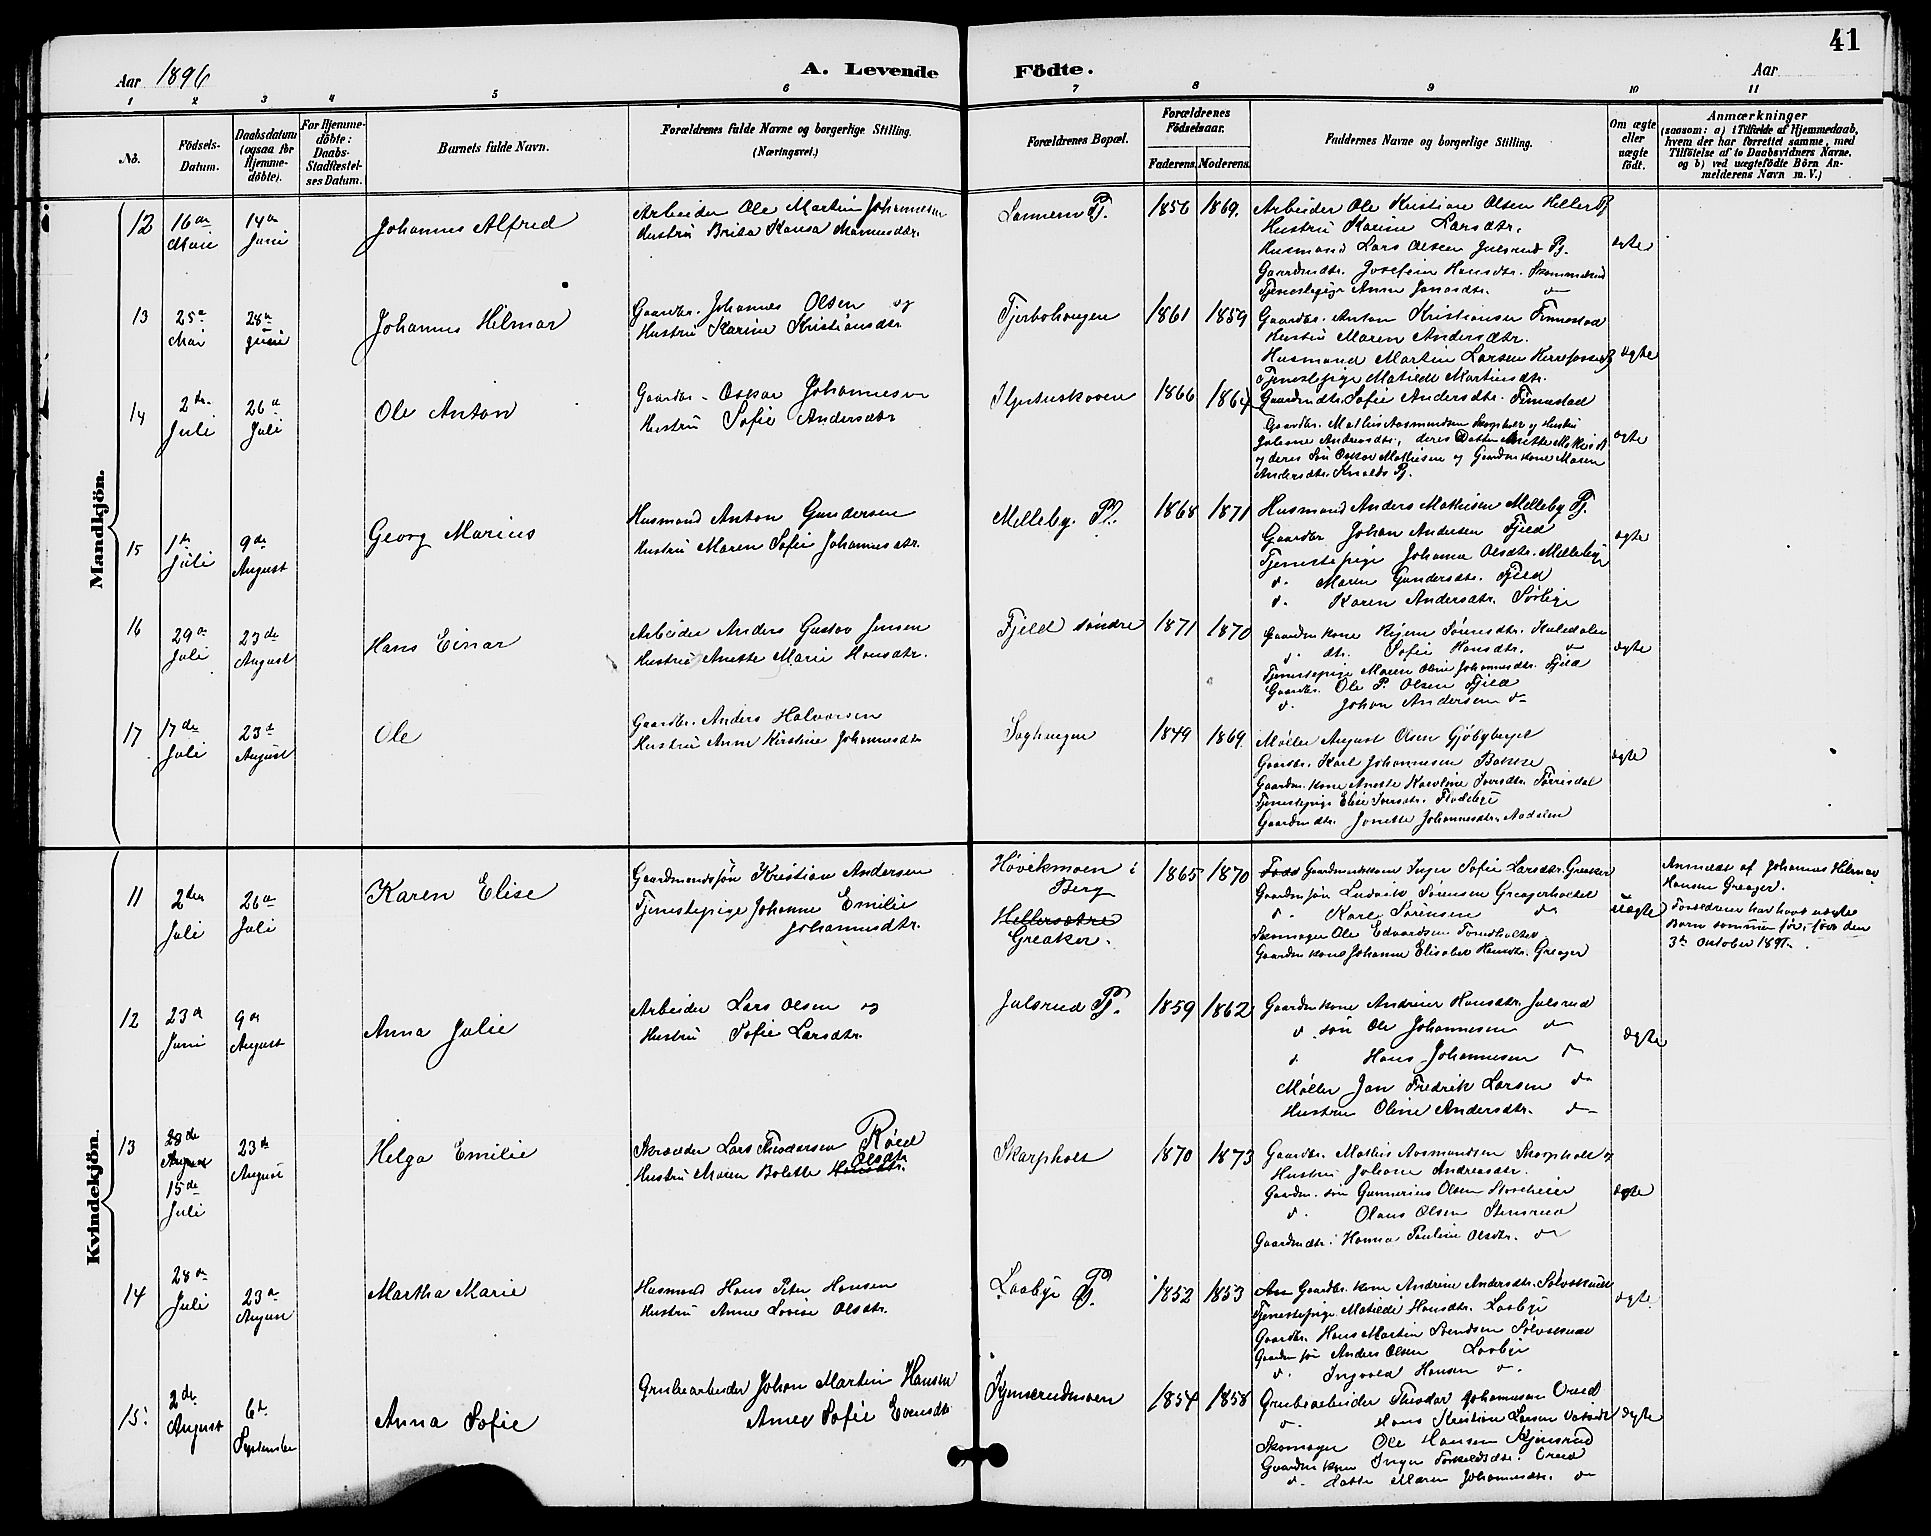 41
Aar 1896
A. Levende Födte.
Aar
1 2 3 4 5 6 7 8 9 10 11
No.
Födsels-Datum.
Daabsdatum (ogsaa for Hjemme-döbte).
For Hjemme-döbte: Daabs-Stadfæstel-ses Datum.
Barnets fulde Navn.
Forældrenes fulde Navne og borgerlige Stilling. (Næringsvei.)
Forældrenes Bopæl.
Forældrenes Födselsaar.
Faderens. Moderens.
Faddernes Navne og borgerlige Stilling.
Om ægte eller uægte födt.
Anmærkninger
(saasom: a) i Tilfælde af Hjemmedaab, hvem der har forrettet samme, med Tilföielse af to Daabsvidners Navne, og b) ved uægtefödte Börn An-melderens Navn m. V.)
Mandkjön.
12
16de Mai
14de Juni
Johannes Alfred
Arbeider Ole Martin Johannesen
Hustru Brita Kaisa Magnusdtr.
Pl.
1856 1869.
Arbeider Ole Kristian Olsen Heller Pl
Hustru Karine Larsdtr.
Husmand Lars Olsen Julsrud Pl.
Gaardmdtr. Josefine Hansdtr.
Tjenestepige Anna Jensdtr. do
ægte
13
25de Mai
28de Juni
Johannes Hilmar
Gaardbr. Johannes Olsen og
Hustru Karine Kristiansdtr
Tjerbohougen
1861 1859
Gaardbr. Anton Kristiansen Finnestad
Hustru Maren Andersdtr.
Husmand Martin Larsen
Tjenestepige Matilde Martinsdtr.
ægte
14
2den Juli
26de Juli
Ole Anton
Gaardbr. Oskar Johannesen
Hustru Sofie Andersdtr
1866 1864
Gaardmdtr. Sofie Andersdtr. Finnestad
Gaardbr. Mathis Aasmundsen Skarpholt og Hustru
Juliane Andreasdtr., deres Datter Anette
og deres Søn Oskar Mathisen og Gaardm kone Maren
Andersdtr. Pl.
ægte
15
1ste Juli
9de August
Georg Marius
Husmand Anton Gundersen
Hustru Maren Sofie Johannesdtr.
Melleby. Pl.
1868 1871
Husmand Anders Mathisen Melleby Pl.
Gaardbr Johan Andersen Fjeld
Tjenestepige Johanne Olsdtr. Melleby
do. Maren Gundersdtr. Fjeld
do. Karen Andersdtr. Sørlige
ægte
16
29de Juli
23de August
Hans Einar
Arbeider Anders Gustav Jensen
Hustru Anette Marie Hansdtr.
Fjeld søndre
1871 1870
Gaardm kone Sørensdtr.
do. dtr. Sofie Hansdtr. do
Tjenestepige Maren Oline Johannesdtr. Fjeld
Gaardbr. Ole P. Olsen Fjeld
do. Johan Andersen do
ægte
17
17de Juli
23de August
Ole
Gaardbr. Anders Halvorsen
Hustru Anne Kirstine Johannesdtr
1849 1869.
Møller August Olsen
Gaardbr. Karl Johannesen Bakke
Gaardm. kone Anette Karoline Iversdtr. Torrisdal
Tjenestepige Elise Iversdtr.
Gaardmdtr. Jonette Johannesdtr.
ægte
Kvindekjön.
11
2den Juli
26de Juli
Karen Elise
Gaardmandssøn Kristian Andersen
Tjenestepige Johanne Emilie
Johannesdtr.
Høvikmoen i
Berg
Hellersætre
Greaker.
1865 1870
Gaardmandskone Inger Sofie Larsdtr. Greaker
Gaardm søn Ludvik Sørensen
do. Karl Sørensen do
Skomager Ole Edvardsen
Gaardm kone Johanne Elisabet Hansdtr. Greager
uægte
Anmeldt af Johannes Hilmar
Hansen Greager.
Forældrene har havt uægte
Barn sammen før, født den
3die Oktober 1891.
12
23de Juni
9de August
Anna Julie
Arbeider Lars Olsen og
Hustru Sofie Larsdtr.
Julsrud Pl.
1859 1862
Gaardm kone Andrine Hansdtr. Julsrud
do. søn Ole Johannesen do
do. Hans Johannesen do
Møller Jan Fredrik Larsen do
Hustru Oline Andersdtr. do
ægte
13
28de August
15de Juli
23de August
Helga Emilie
Skrædder Lars Theodorsen Røed
Hustru Maren Bolette Hansdtr. Olsdtr
Skarpholt
1870 1873
Gaardbr. Mathis Aasmundsen Skarpholt og
Hustru Juliane Andreasdtr.
Gaardm. søn Gunnerius Olsen
do. Olaus Olsen Stensrud
Gaardmdtr. Hanna Pauline Olsdtr. do
ægte
14
28de Juli
23de August
Martha Marie
Husmand Hans Peter Hansen
Hustru Anne Lovise Olsdtr.
Laaby Pl.
1852 1853
Gaardbr. kone Andrine Andersdtr.
Tjenestepige Matilde Hansdtr. Laaby
Gaardbr. Hans Martin Svendsen
Gaardm søn Anders Olsen Laaby
do. Ingvald Hansen do.
ægte
15
2den August
6te September
Anna Sofie
Grubearbeider Johan Martin Hansen
Anne Sofie Evensdtr
1854 1858
Grubearbeider Theodor Johannesen
do. Hans Kristian Larsen
Skomager Ole Hansen
Gaardm kone Inger Torkildsdtr.
do. datter Maren Johannesdtr. do
ægte